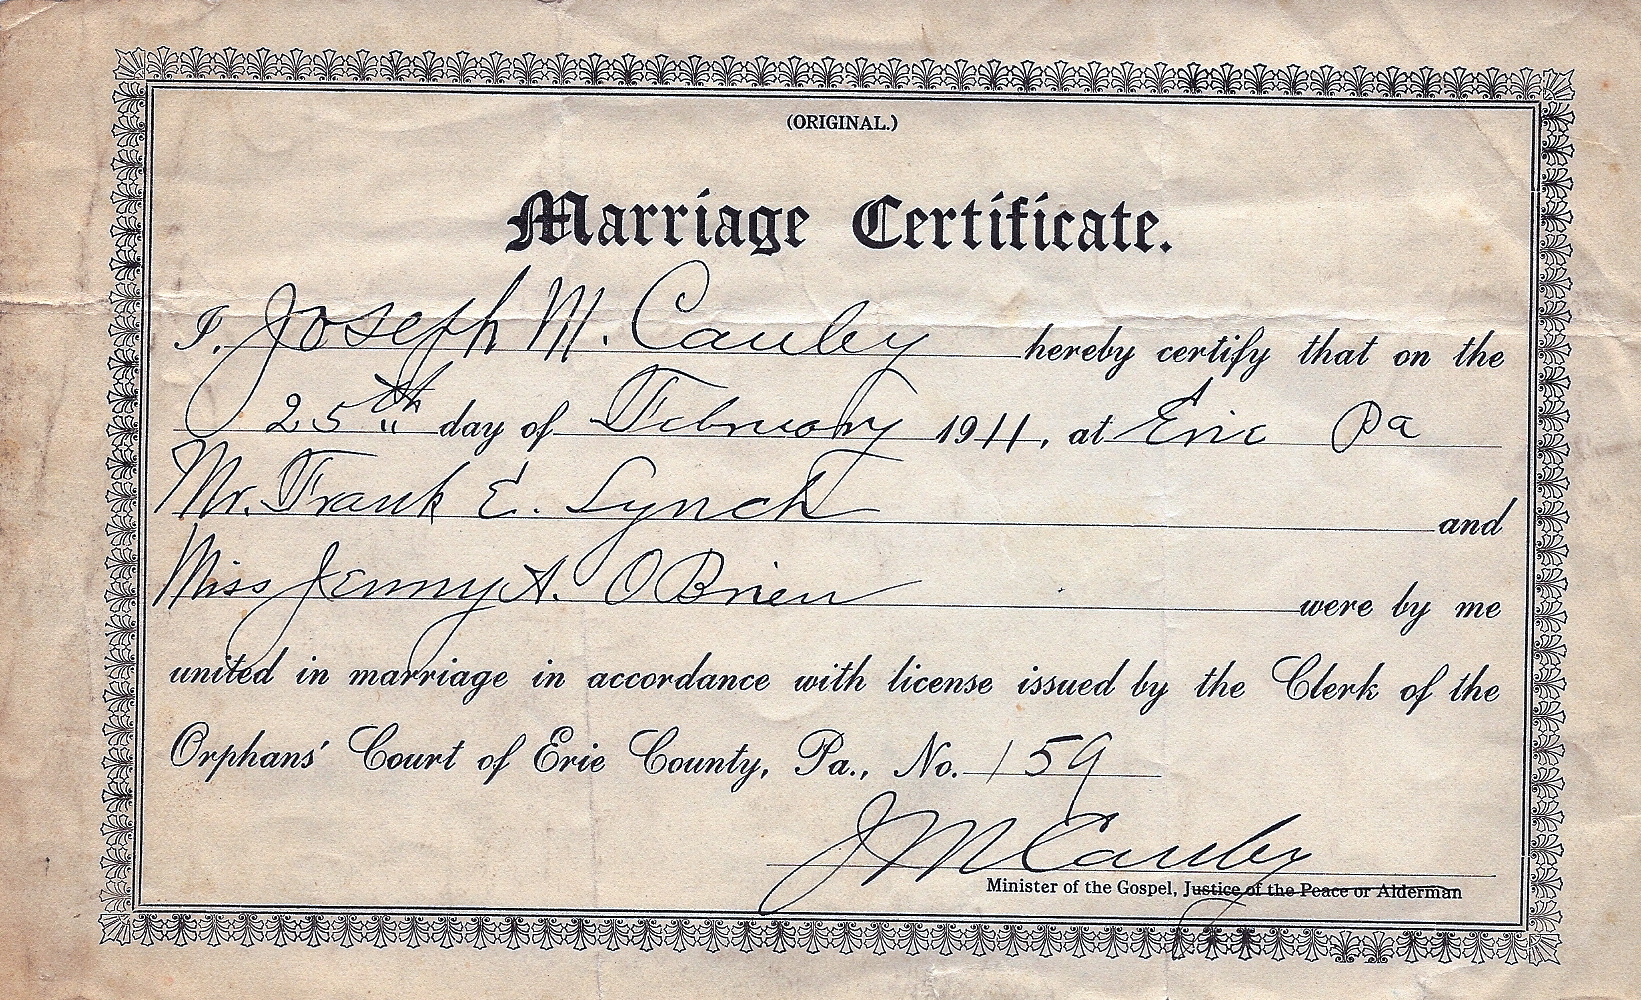 (ORIGINAL.)
Marriage Certificate.
I, Joseph M. Cauley hereby certify that on the
25th day of February 1911, at Erie Pa
Mr. Frank E. Lynch and
Miss Jenny A. OBrien were by me
united in marriage in accordance with license issued by the Clerk of the
Orphans' Court of Erie County, Pa., No. 159
J M Cauley
Minister of the Gospel, Justice of the Peace or Alderman